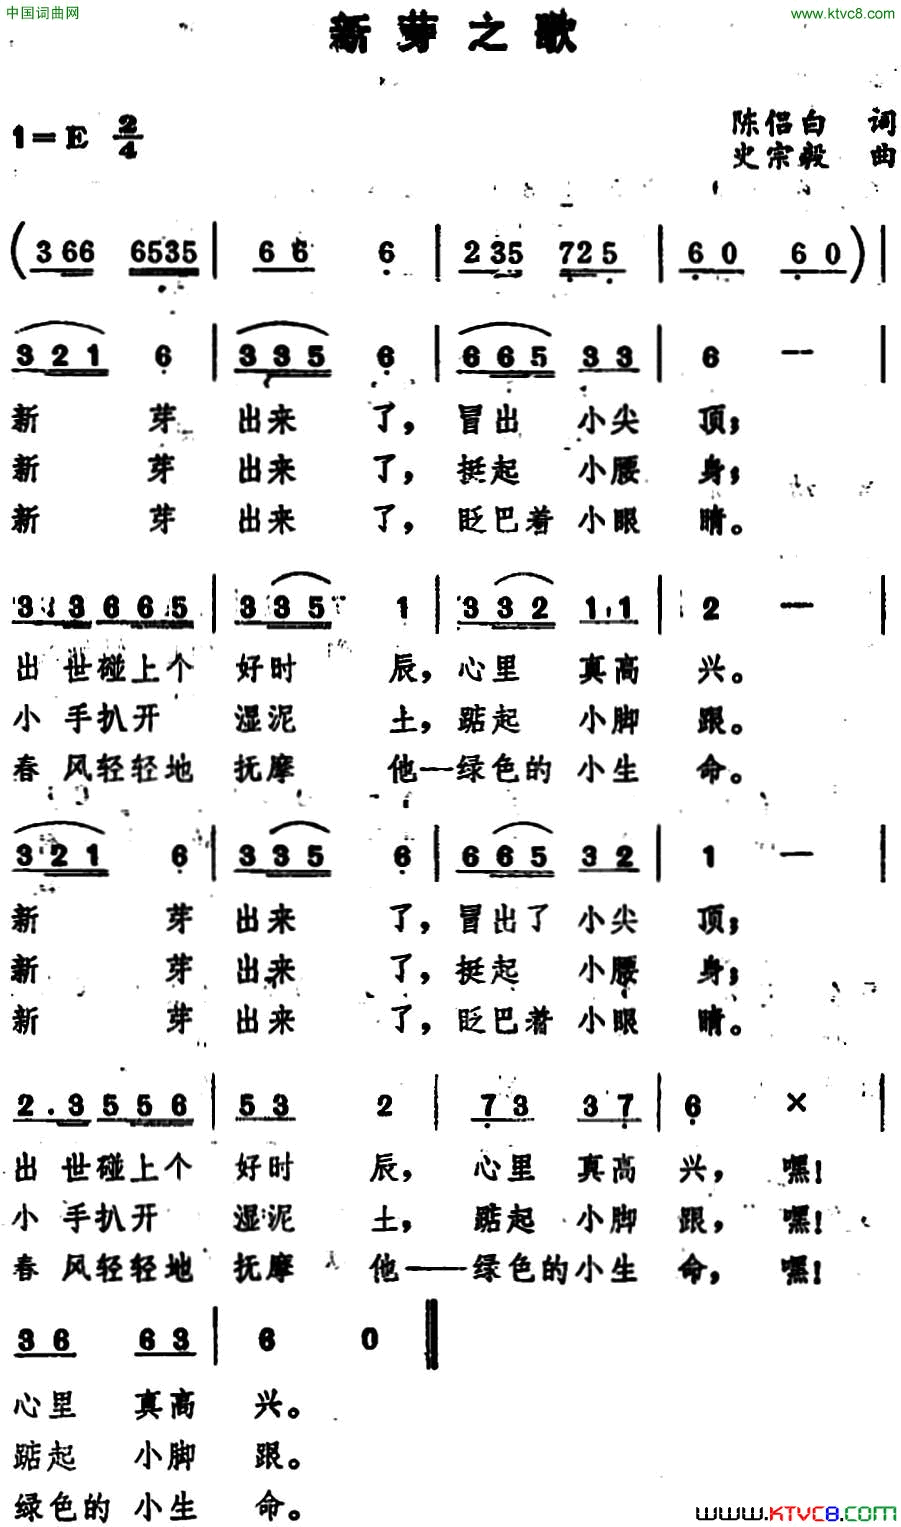 中国词曲网 www.ktvc8.com
新芽之歌
1=E 2/4
陈侣白 词
史宗毅 曲
(3 66 6535 | 6 6 6 | 2 35 725 | 6 0 6 0) |
3 2 1 6 | 3 3 5 6 | 6 6 5 3 3 | 6 — |
新 芽 出来 了, 冒出 小尖 顶;
新 芽 出来 了, 挺起 小腰 身;
新 芽 出来 了, 眨巴着 小眼 睛。
3 3 6 6 5 | 3 3 5 1 | 3 3 2 1 1 | 2 — |
出 世碰上个 好时 辰, 心里 真高 兴。
小 手扒开 湿泥 土, 踮起 小脚 跟。
春 风轻轻地 抚摩 他—绿色的 小生 命。
3 2 1 6 | 3 3 5 6 | 6 6 5 3 2 | 1 — |
新 芽 出来 了, 冒出了 小尖 顶;
新 芽 出来 了, 挺起 小腰 身;
新 芽 出来 了, 眨巴着 小眼 睛。
2 . 3 5 5 6 | 5 3 2 | 7 3 3 7 | 6 × |
出 世碰上个 好时 辰, 心里 真高 兴, 嘿!
小 手扒开 湿泥 土, 踮起 小脚 跟, 嘿!
春 风轻轻地 抚摩 他——绿色的小生 命, 嘿!
3 6 6 3 | 6 0 ‖
心里 真高 兴。
踮起 小脚 跟。
绿色的 小生 命。
www.KTVC8.com